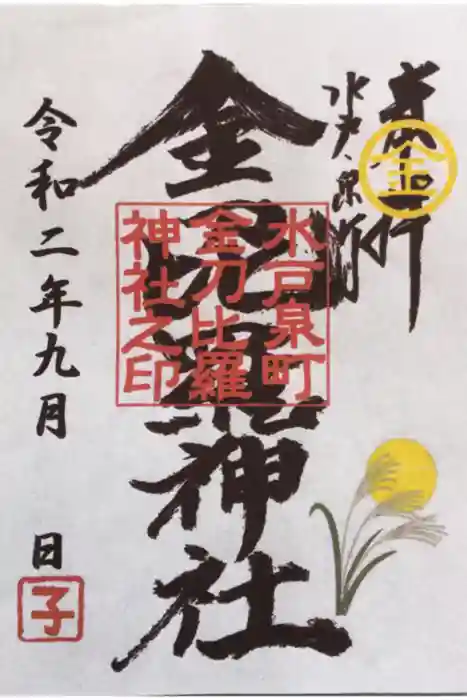 奉拝
金
水戸、泉町
金刀比羅神社
水戸泉町
金刀比羅
神社之印
令和二年九月　日
子